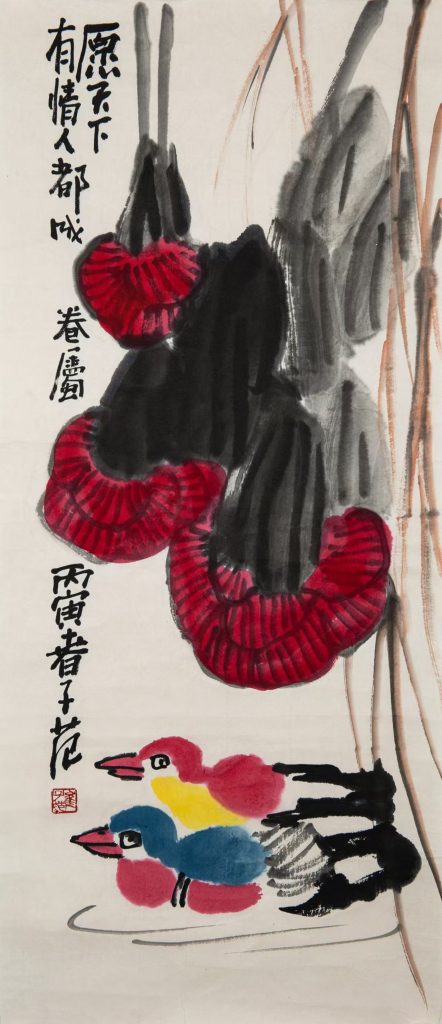 愿天下
有情人都成眷属丙寅春子范